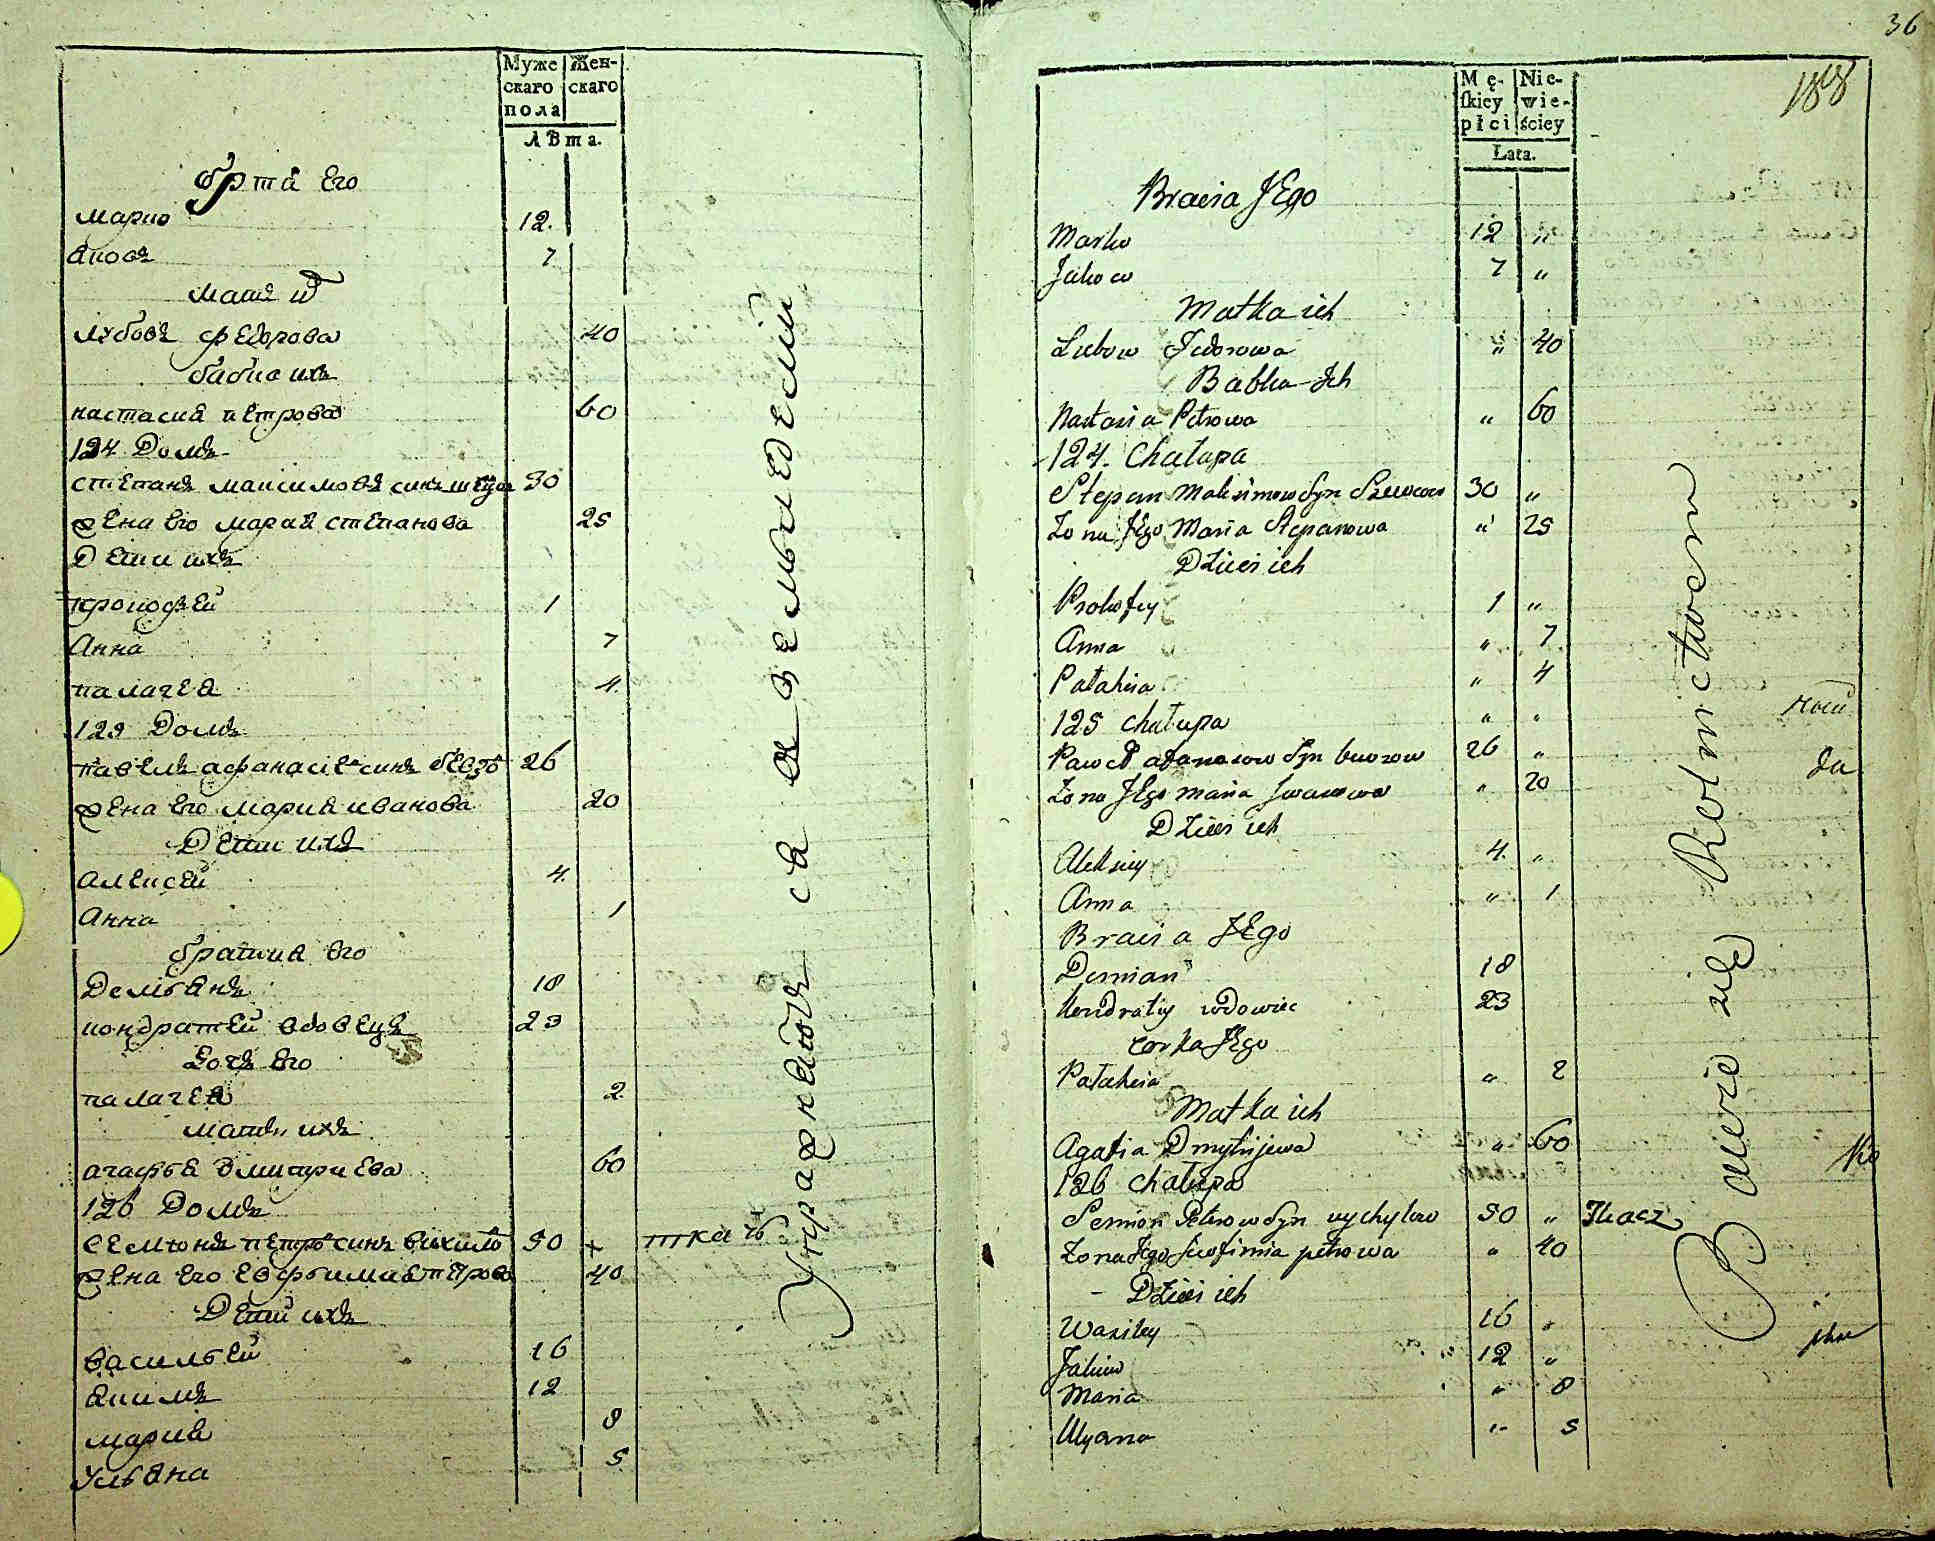 Муже
скаго
пола
Жен-
скаго
Лѣта.
брта его
марко 12.
яковъ 7
мать их
любовь федорова 40
бабка ихъ
настасия петрова 60
124 Домъ
степанъ максимовъ синъ 30
жена его мария степанова 25
Дети ихъ
прокофей 1
Анна 7
палагея 4.
125 Домъ
павелъ афанасіевъ синъ 26
жена его мария иванова 20
Дети ихъ
алексей 4.
Анна 1
братия его
Демьянъ 18
кондратей вдовецъ 23
дочь его
палагея 2.
мать ихъ
агафья дмитриева 60
126 Домъ
семионъ петровъ синъ 50 + ткачъ
жена его евфимия петрова 40
Дети ихъ
василей 16
якимъ 12
мария 8
Ульяна 5
Упражняютца в земледелии
36
188
Mę-
skiey
płci
Nie-
wie-
ściey
Lata.
Bracia JEgo
Marko 12 „
Jakow 7 „
Matka ich
Lubow Fedorowa „ 40
Babka Ich
Nastasia Petrowa „ 60
124. Chałupa
Stepan Maksimow Syn 30 „
Zona JEgo Maria Stepanowa „ 25
Dzieci ich
Prokofey 1 „
Anna „ 7
Pałahia „ 4
125 chałupa „ „
Paweł afanasow Syn 26 „
Zona JEgo maria Iwanowa „ 20
Dzieci ich
Aleksiey 4. „
Anna „ 1
Bracia JEgo
Demian 18
Kondratiy wdowiec 23
corka JEgo
Pałahia „ 2
Matka ich
Agafia Dmytrijewa „ 60
126 chałupa
Semion Petrow Syn 50 „ Tkacz
Zona Jego Jewfimia petrowa „ 40
- Dzieci ich
Wasiley 16 „
Jakim 12 „
Maria „ 8
Ulyana „ 5
Bawio się Rolnictwem